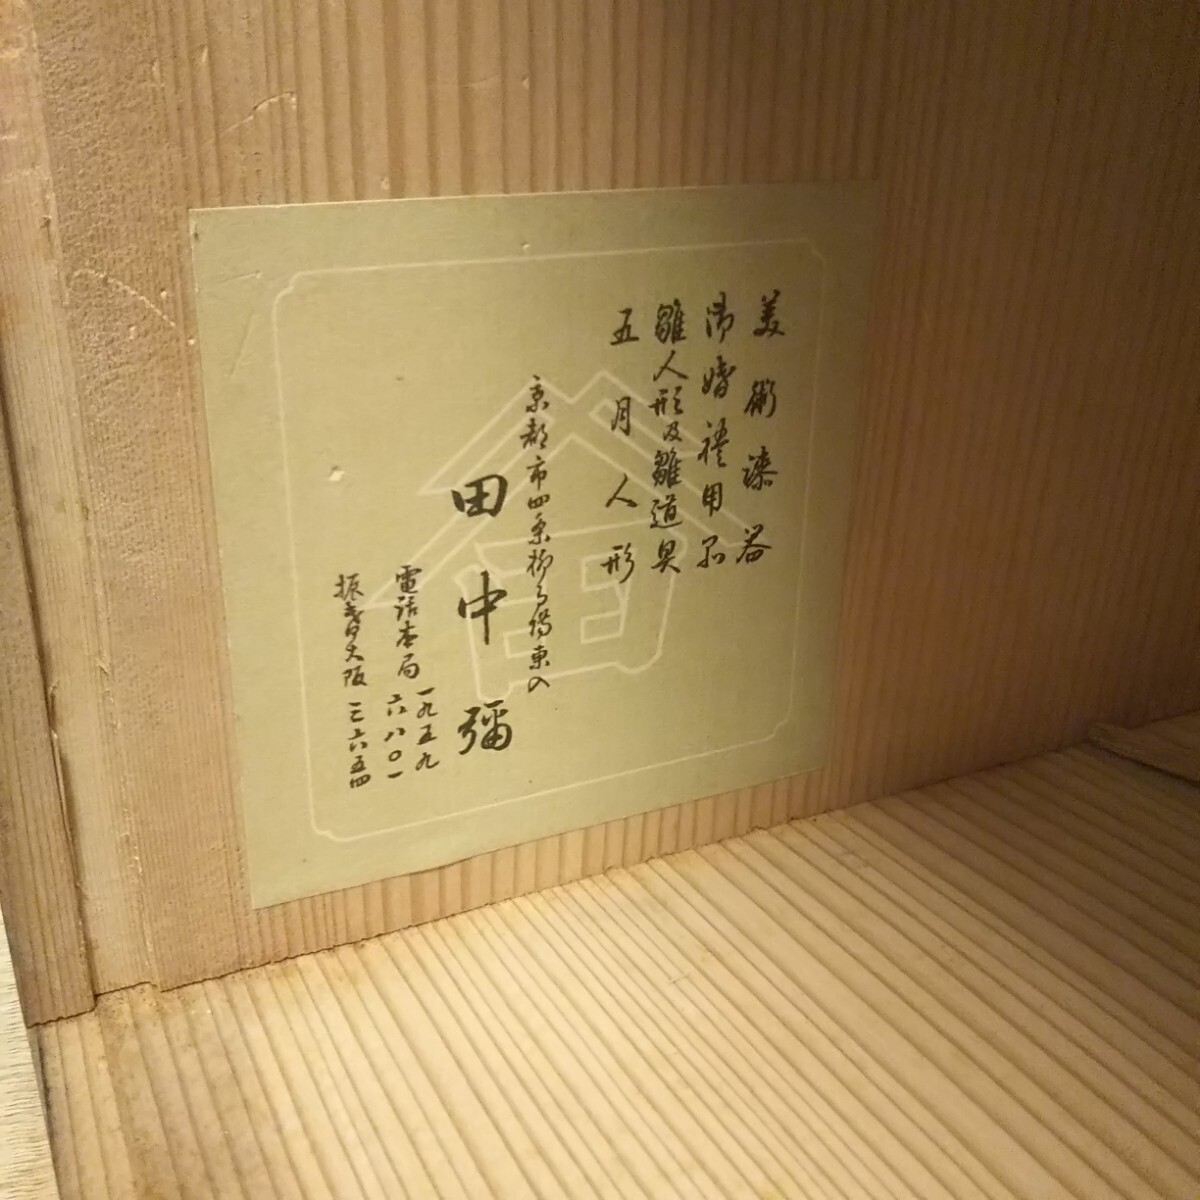 美術漆器
御婚禮用品
雛人形及雛道具
五月人形
京都市四条柳馬場東入
田中彌
電話本局 一九五九
六八〇一
振替大阪 三六五四